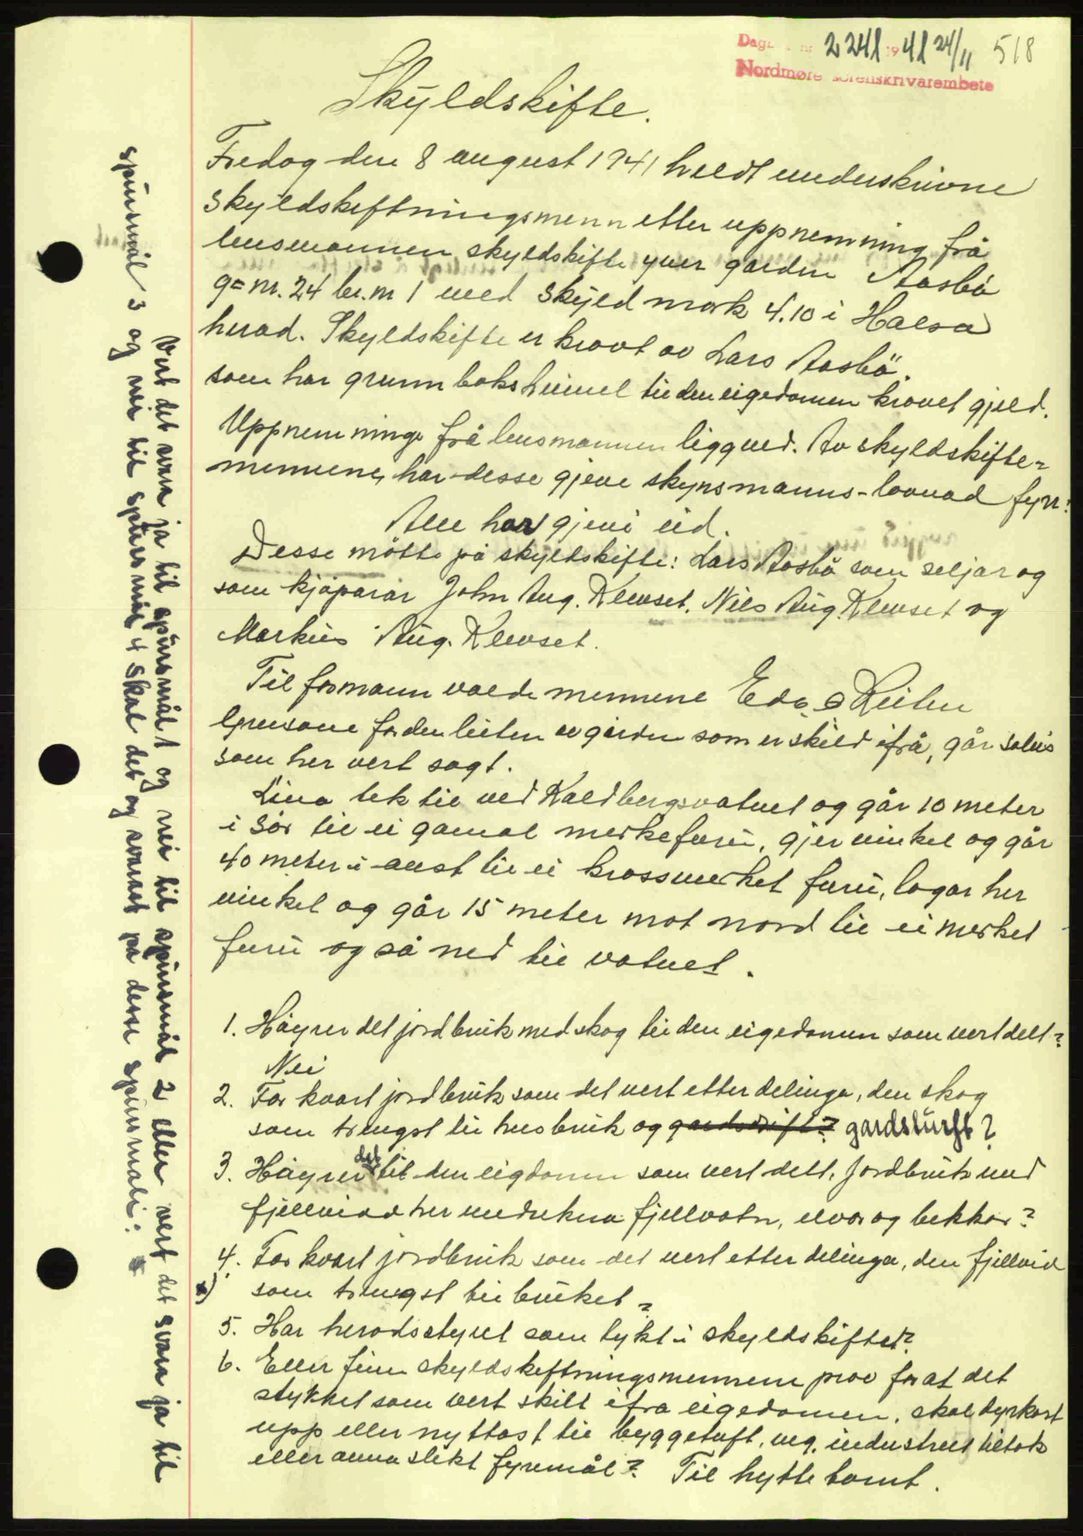 2241 1941 24/11 518
Nordmøre sorenskrivarembete
Skyldskifte.
Fredag den 8 august 1941 heldt underskrivne
skyldskiftningsmenn etter uppnemning frå
lensmannen skyldskifte yver garden Aasbö
g=nr. 24 br.nr 1 med skyld mark 4.10 i Halsa
herad. Skyldskifte er kravt av Lars Aasbö.
som har grunnboksheimel til den eigedomen kravet gjeld.
Uppnemninga frå lensmannen ligg ved. Av skyldskifte=
mennene, har desse gjeve skynsmanns-lovnad fyrr:
Alle har gjeve eid.
Desse mötte på skyldskifte: Lars Aasbö som seljar og
som kjöparar John Aug. Klevset, Nils Aug. Klevset og
Markus Aug. Klevset.
Til formann valde mennene
Grensone for den luten av garden som er skild ifrå, går soleis
som her vert sagt.
Lina tek til ved Kaldbergsvatnet og går 10 meter
i sør til ei gamal merkefuru, gjer vinkel og går
40 meter i aust til ei krossmerket furu, lagar her
vinkel og går 15 meter mot nord til ei merket
furu og så ned til vatnet.
1. Höyrer det jordbruk med skog til den eigedomen som vert delt?
Nei
2. Far kvart jordbruk som det vert etter delinga, den skog
som trengst til husbruk og gardsdrift? gardsturft?
3. Höyrer det til den eigdomen som vert delt, jordbruk med
fjellvidd her medrekna fjellvatn, elvar og bekkar?
4. Far kvart jordbruk som det vert etter delinga, den fjellvid
som trengst til bruket?
5. Har heradsstyret samtykt i skyldskiftet?
6. Eller finn skyldskiftningsmennene prov for at det
stykket som vert skilt ifra eigedomen, skal dyrkast
upp eller nyttast til byggetuft, veg, industrielt tiltak
eller anna slikt fyremål? Til hyttetomt.
Vert det svara ja til spursmål 1 og nei til spursmål 2 eller vert det svara ja til
spursmål 3 og nei til spursmål 4 skal det og svarast på desse spursmåli: